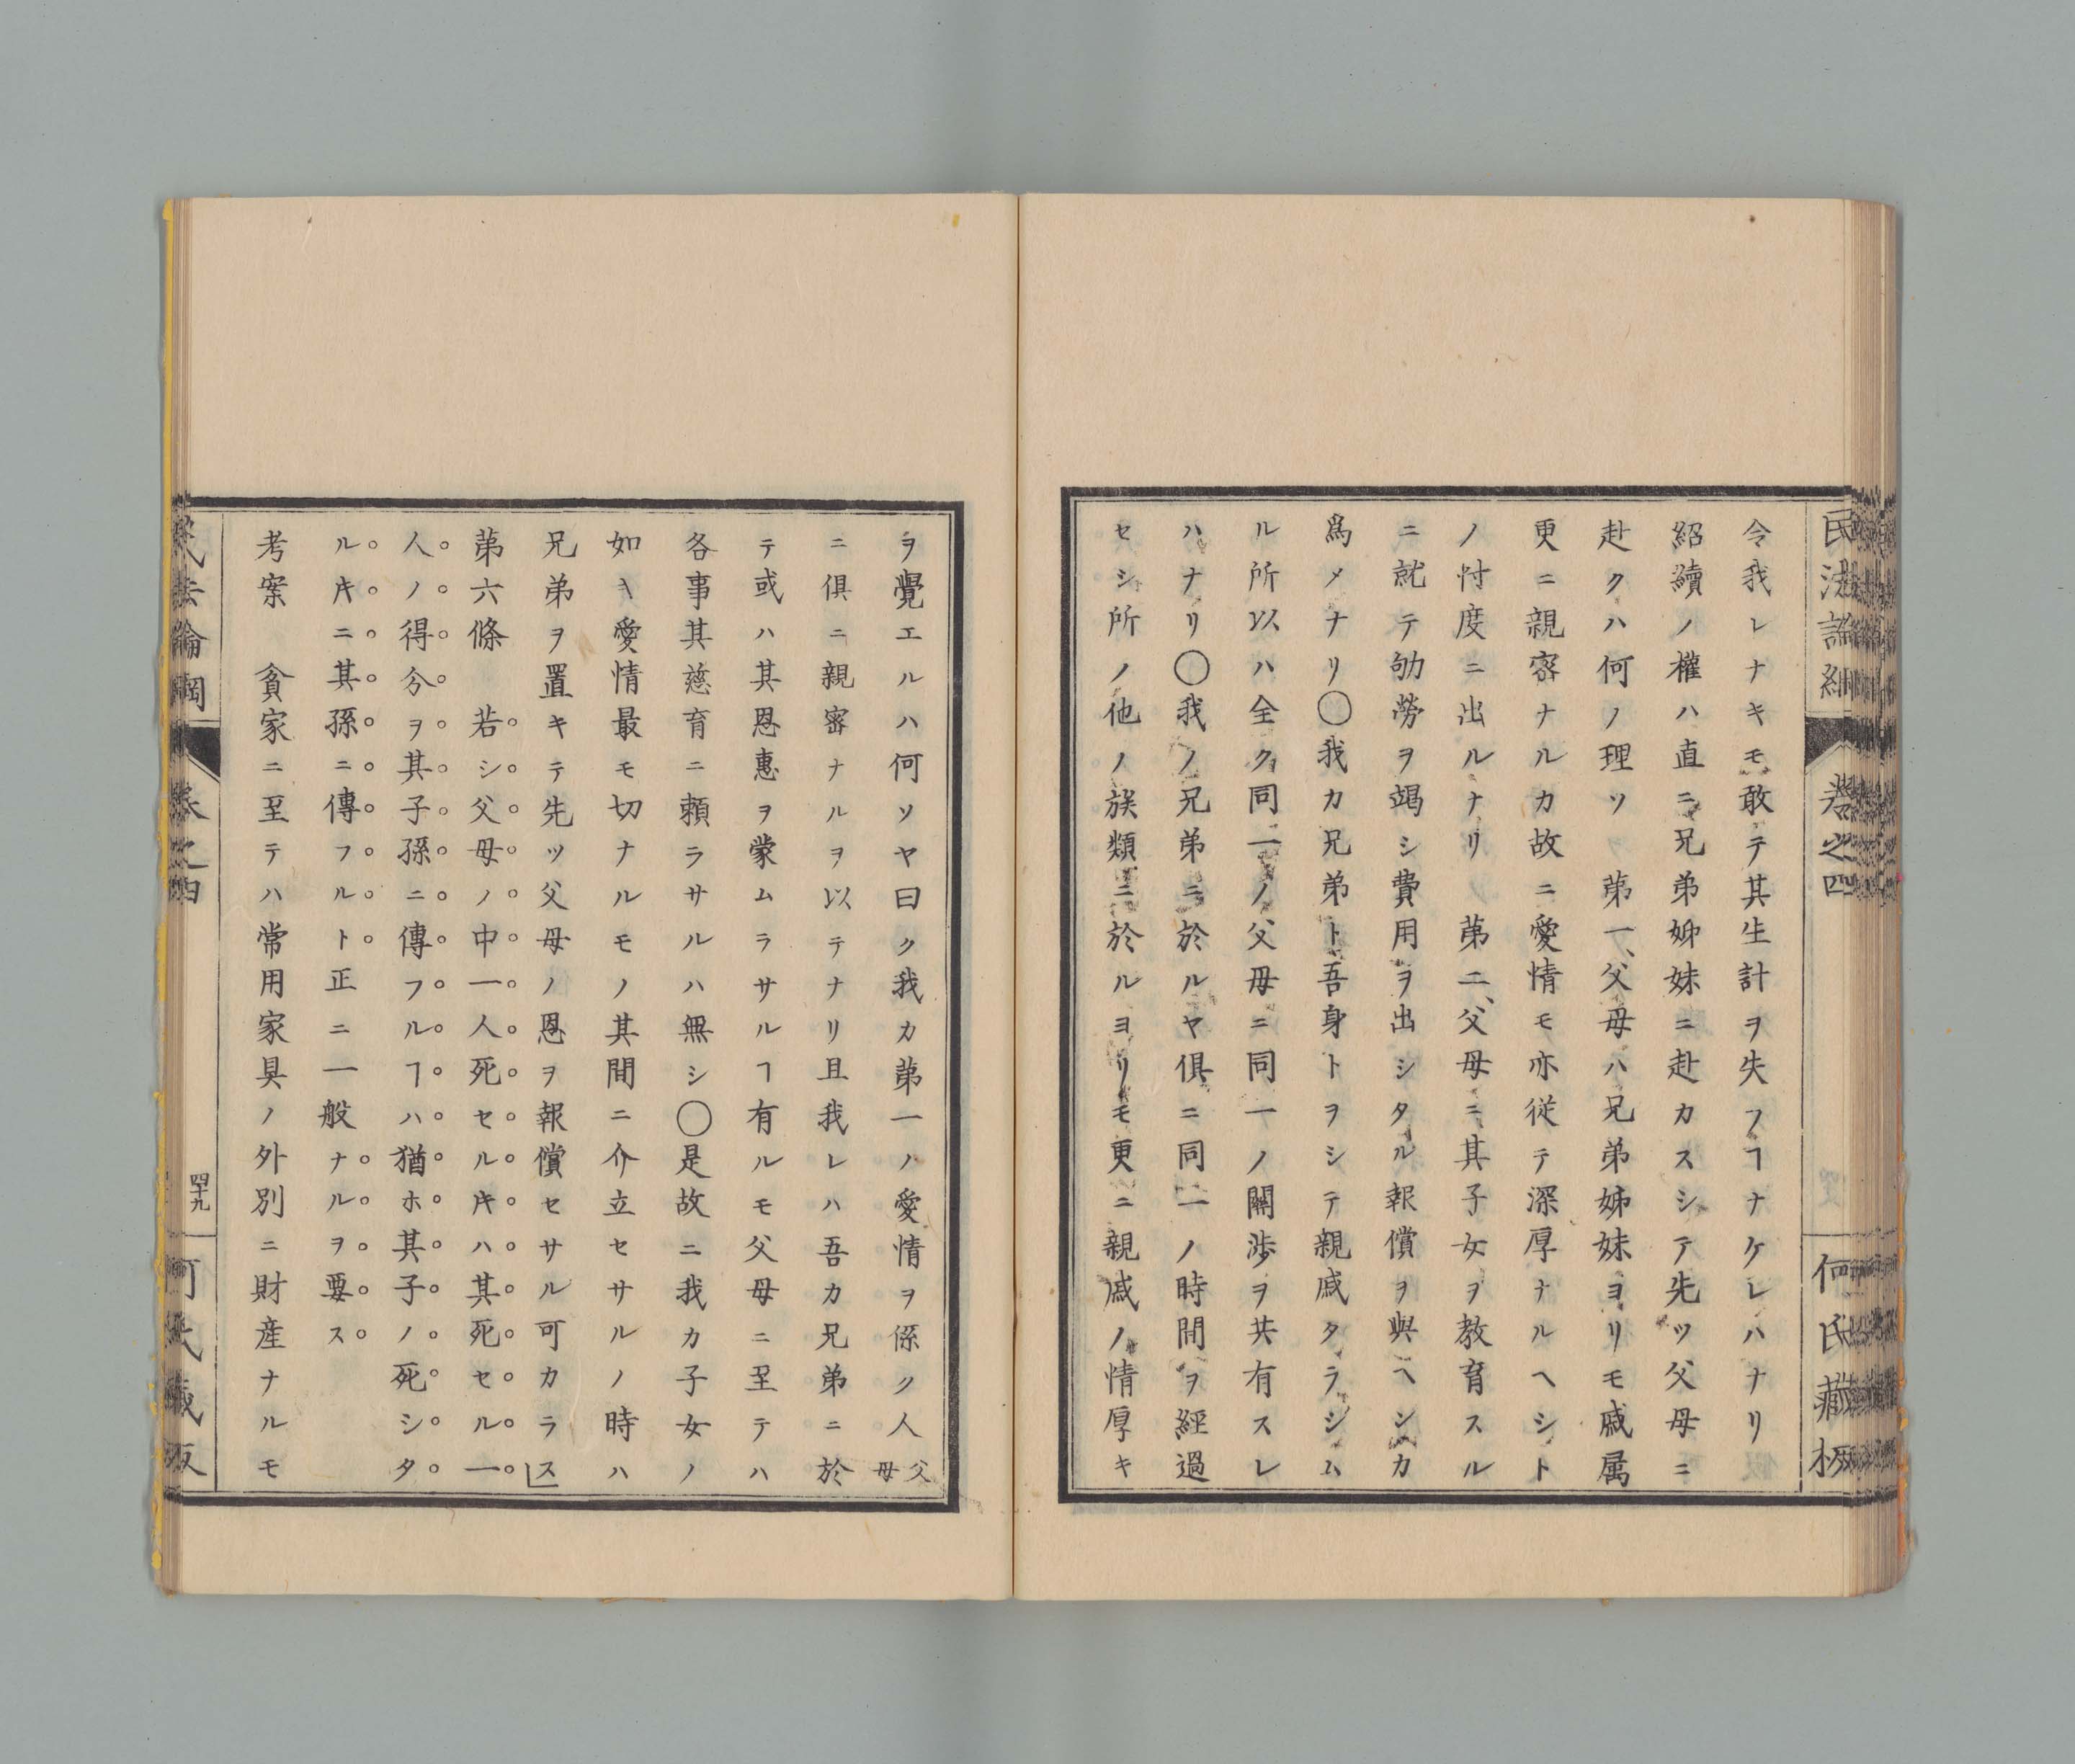 民法論綱
卷之四
何氏藏板
令我レナキモ敢テ其生計ヲ失フヿナケレハナリ
紹續ノ權ハ直ニ兄弟姉妹ニ赴カスシテ先ツ父母ニ
赴クハ何ノ理ソ 第一、父母ハ兄弟姉妹ヨリモ戚属
更ニ親密ナルカ故ニ愛情モ亦従テ深厚ナルヘシト
ノ忖度ニ出ルナリ 第二、父母ニ其子女ヲ教育スル
ニ就テ劬勞ヲ竭シ費用ヲ出シタル報償ヲ與ヘンカ
爲メナリ〇我カ兄弟ト吾身トヲシテ親戚タラシム
ル所以ハ全ク同一ノ父母ニ同一ノ關渉ヲ共有スレ
ハナリ〇我ノ兄弟ニ於ルヤ俱ニ同一ノ時間ヲ經過
セシ所ノ他ノ族類ニ於ルヨリモ更ニ親戚ノ情厚キ
ヲ覺エルハ何ソヤ曰ク我カ第一ノ愛情ヲ係ク人父母
ニ俱ニ親密ナルヲ以テナリ且我レハ吾カ兄弟ニ於
テ或ハ其恩惠ヲ蒙ムラサルヿ有ルモ父母ニ至テハ
各事其慈育ニ頼ラサルハ無シ〇是故ニ我カ子女ノ
如キ愛情最モ切ナルモノ其間ニ介立セサルノ時ハ
兄弟ヲ置キテ先ツ父母ノ恩ヲ報償セサル可カラス
第六條 若シ父母ノ中一人死セルキハ其死セル一
人ノ得分ヲ其子孫ニ傳フルヿハ猶ホ其子ノ死シタ
ルキニ其孫ニ傳フルト正ニ一般ナルヲ要ス
考案 貧家ニ至テハ常用家具ノ外別ニ財産ナルモ
民法論綱
卷之四
四十九
何氏藏板